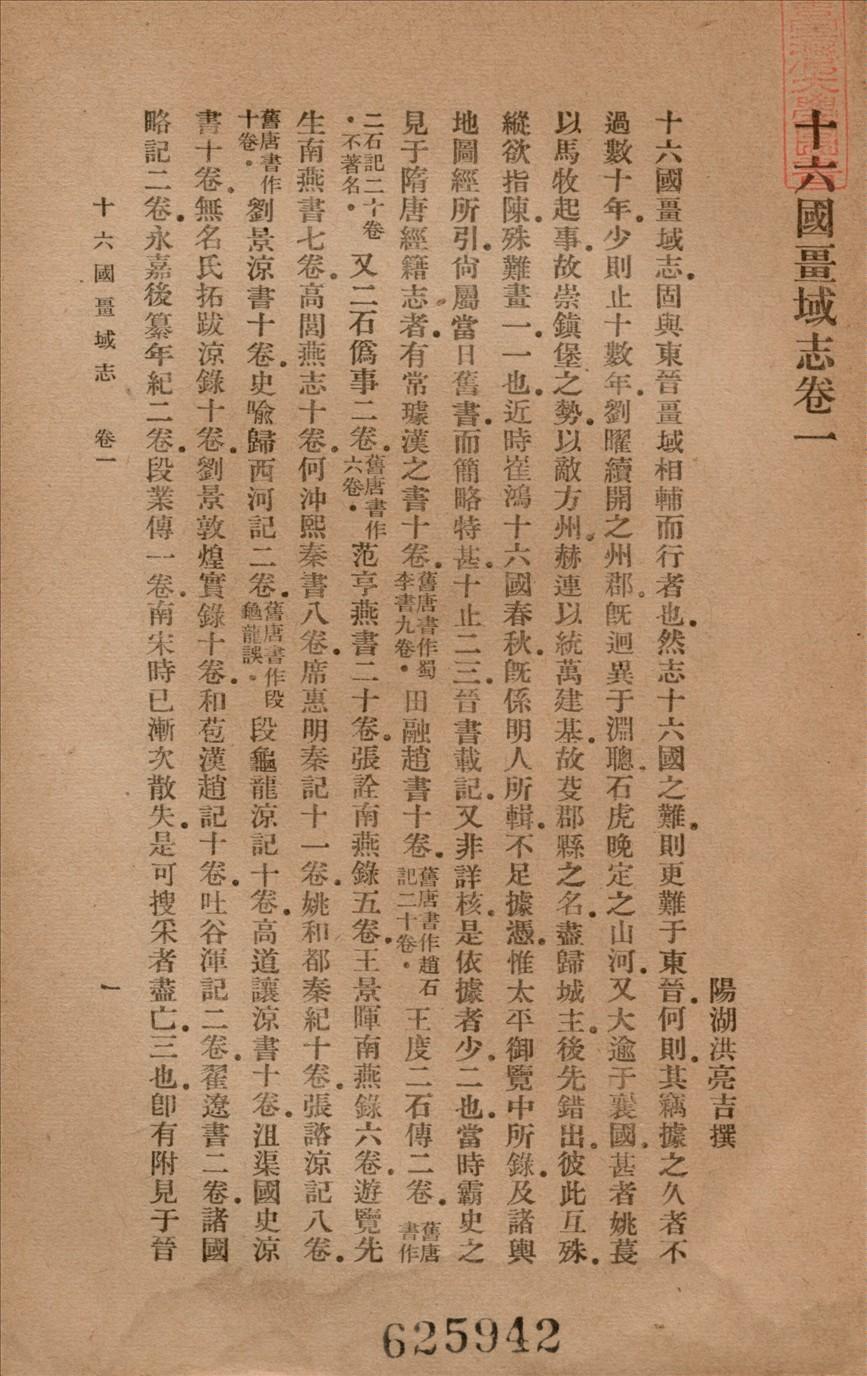 十六國畺域志卷一
陽湖洪亮吉撰
十六國畺域志。固與東晉畺域相輔而行者也。然志十六國之難。則更難于東晉。何則。其竊據之久者不
過數十年。少則止十數年。劉曜續開之州郡。旣迥異于淵聰。石虎晚定之山河。又大逾于襄國。甚者姚萇
以馬牧起事。故崇鎮堡之勢。以敵方州。赫連以統萬建基。故芟郡縣之名。盡歸城主。後先錯出。彼此互殊。
縱欲指陳。殊難畫一。一也。近時崔鴻十六國春秋。旣係明人所輯。不足據憑。惟太平御覽中所錄。及諸輿
地圖經所引。尙屬當日舊書。而簡略特甚。十止二三。晉書載記。又非詳核。是依據者少。二也。當時霸史之
見于隋唐經籍志者。有常璩漢之書十卷。舊唐書作蜀李書九卷。田融趙書十卷。舊唐書作趙石記二十卷。王度二石傳二卷。舊唐書作
二石記二十卷。不著名。又二石僞事二卷。舊唐書作六卷。范亨燕書二十卷。張詮南燕錄五卷。王景暉南燕錄六卷。遊覽先
生南燕書七卷。高閭燕志十卷。何沖熙秦書八卷。席惠明秦記十一卷。姚和都秦紀十卷。張諮涼記八卷。
舊唐書作十卷。劉景涼書十卷。史喩歸西河記二卷。舊唐書作段龜龍誤。段龜龍涼記十卷。高道讓涼書十卷。沮渠國史涼
書十卷。無名氏拓跋涼錄十卷。劉景敦煌實錄十卷。和苞漢趙記十卷。吐谷渾記二卷。翟遼書二卷。諸國
略記二卷。永嘉後纂年紀二卷。段業傳一卷。南宋時已漸次散失。是可搜采者盡亡。三也。卽有附見于晉
十六國畺域志 卷一 一
625942